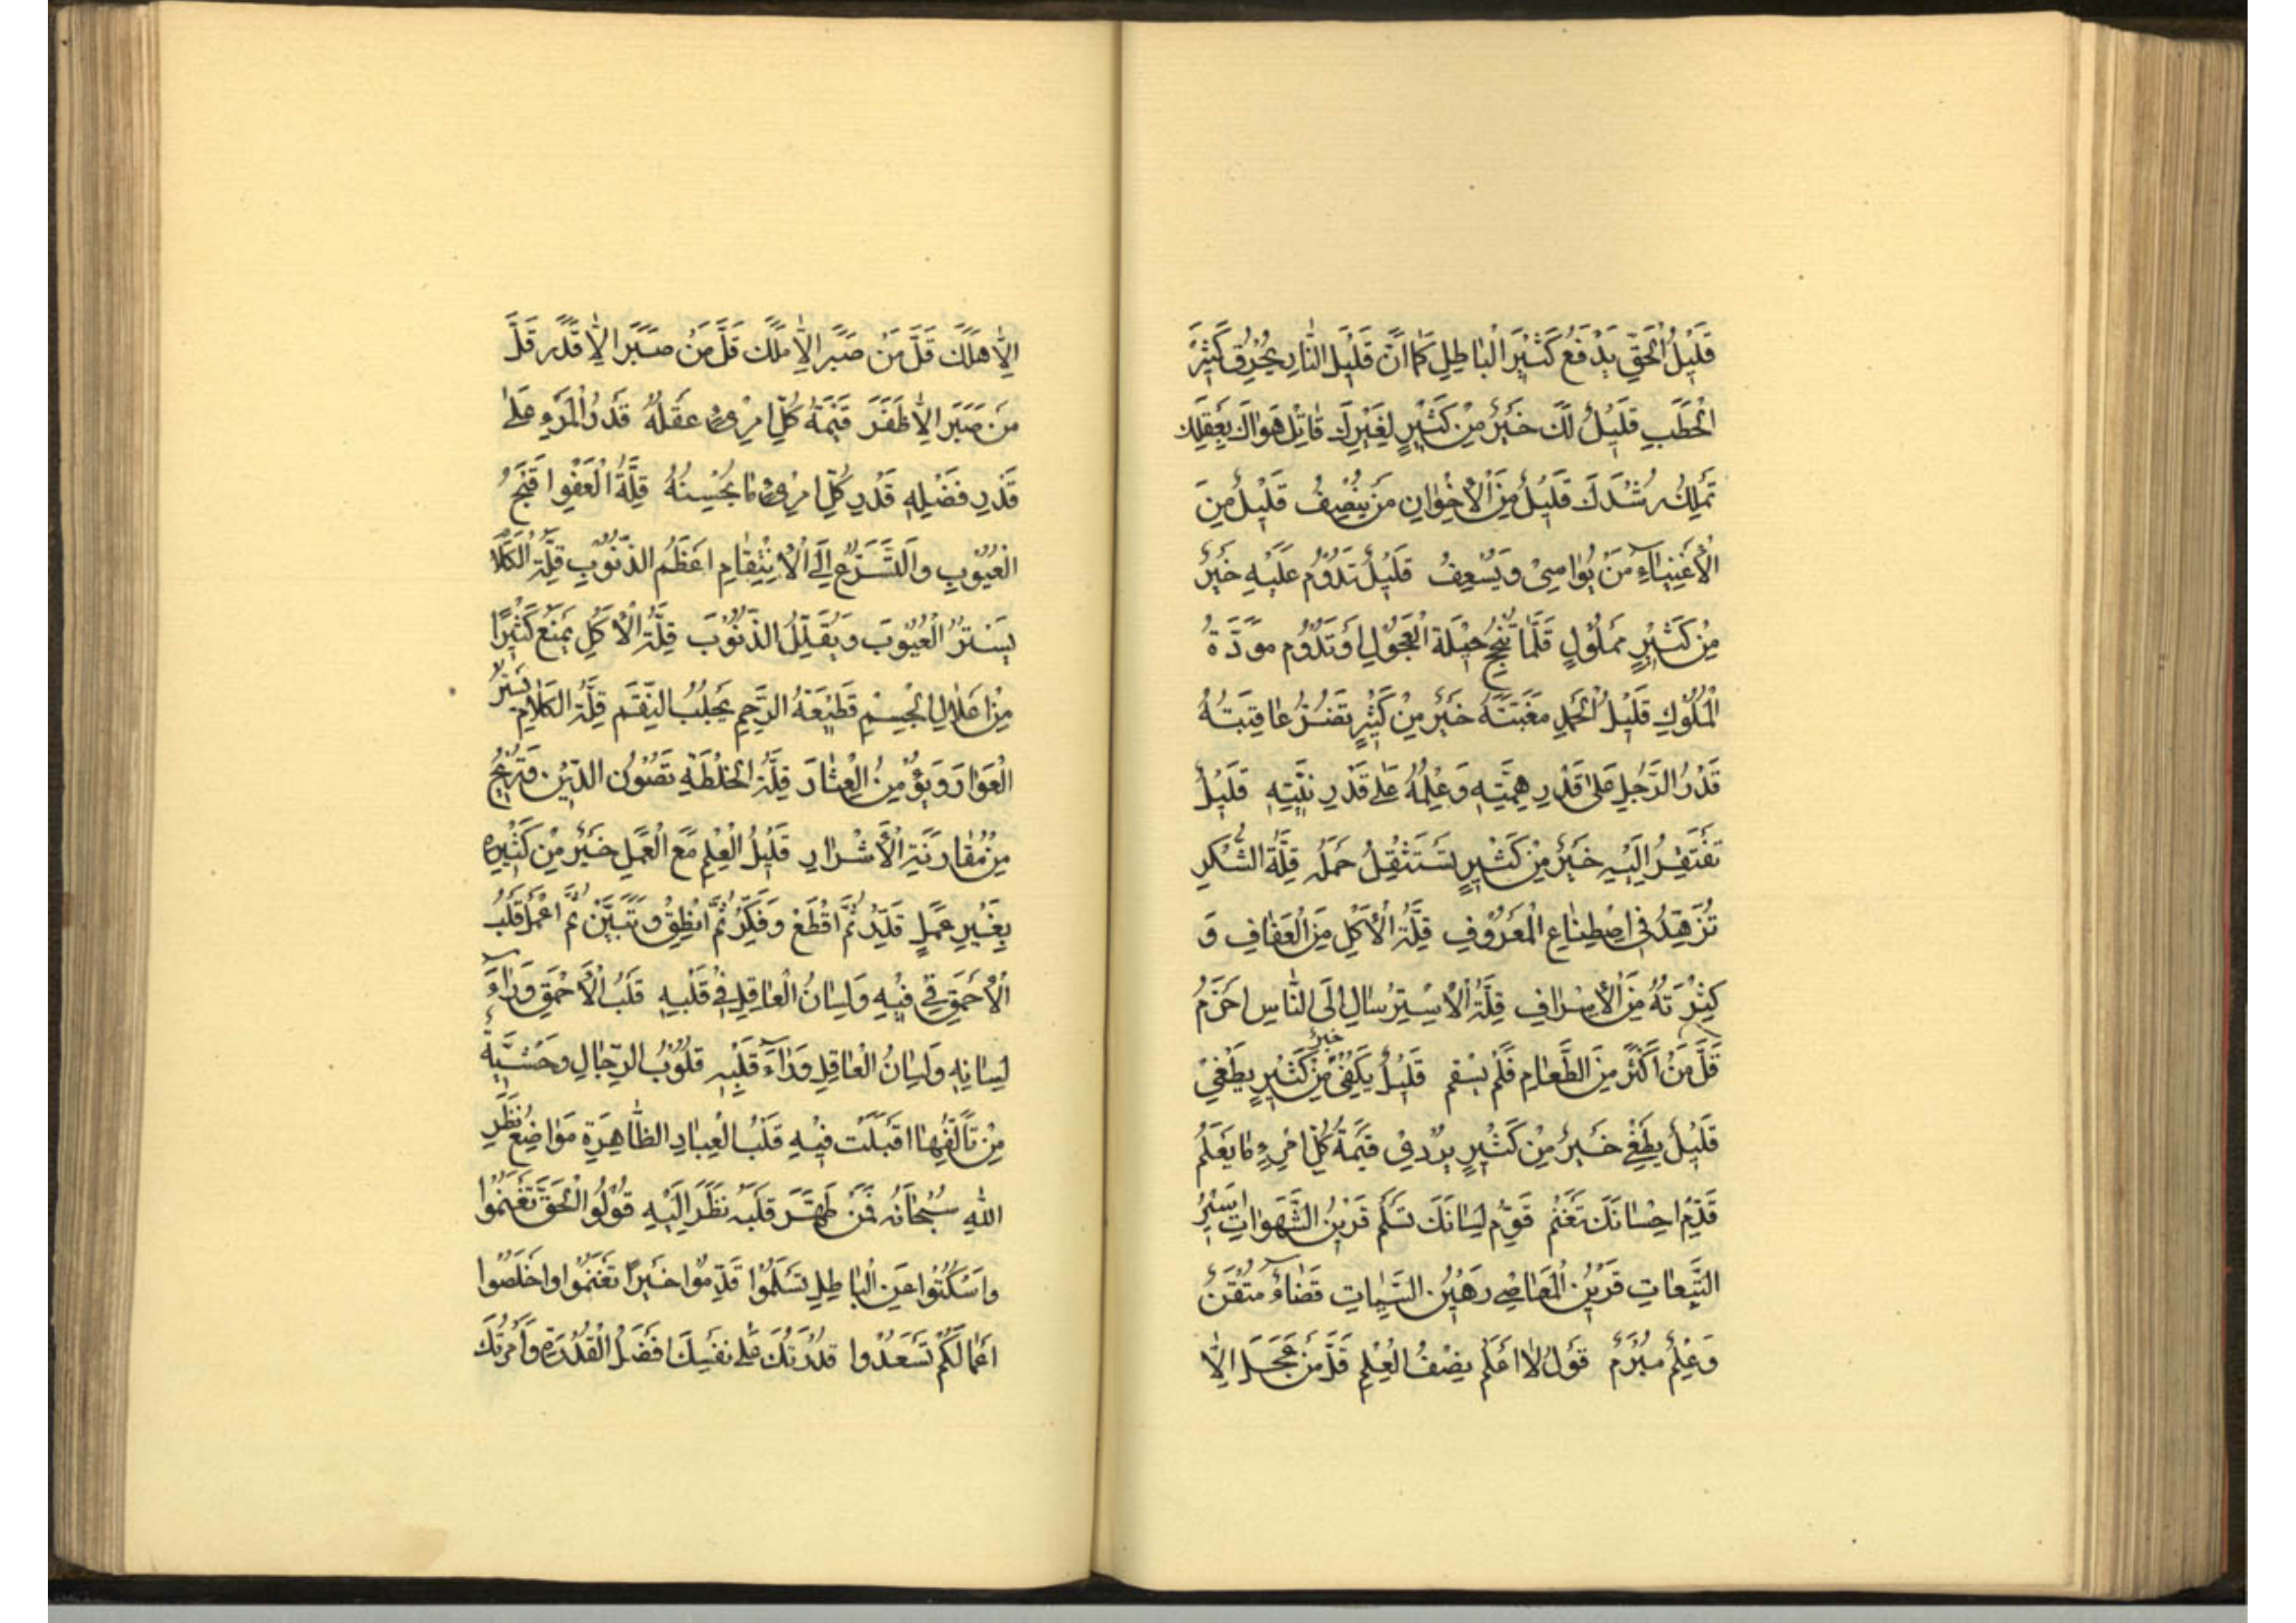 قَلِيْلُ الْحَقِّ يَدْفَعُ كَثِيْرَ الْبَاطِلِ كَمَا اَنَّ قَلِيْلَ النَّارِ يُحْرِقُ كَثِيْرَ
الْحَطَبِ قَلِيْلٌ لَكَ خَيْرٌ مِنْ كَثِيْرٍ لِغَيْرِكَ قَاتِلْ هَوَاكَ بِعَقْلِكَ
تَمْلِكْ رُشْدَكَ قَلِيْلٌ مِنَ الْاِخْوَانِ مَنْ يُنْصِفُ قَلِيْلٌ مِنَ
الْاَغْنِيَاءِ مَنْ يُوَاسِيْ وَيُسْعِفُ قَلِيْلٌ تَدُوْمُ عَلَيْهِ خَيْرٌ
مِنْ كَثِيْرٍ مَمْلُوْلٍ قَلَّمَا تُنْجِحُ حِيْلَةُ الْعَجُوْلِ اَوْ تَدُوْمُ مَوَدَّةُ
الْمُلُوْكِ قَلِيْلٌ تُحْمَدُ مَغَبَّتُهُ خَيْرٌ مِنْ كَثِيْرٍ تَضُرُّ عَاقِبَتُهُ
قَدْرُ الرَّجُلِ عَلىٰ قَدْرِ هِمَّتِهِ وَعِلْمُهُ عَلىٰ قَدْرِ نِيَّتِهِ قَلِيْلٌ
تَفْتَقِرُ اِلَيْهِ خَيْرٌ مِنْ كَثِيْرٍ تَسْتَثْقِلُ حَمْلَهُ قِلَّةُ الشُّكْرِ
تُزَهِّدُ فِي اصْطِنَاعِ الْمَعْرُوْفِ قِلَّةُ الْاَكْلِ مِنَ الْعَفَافِ وَ
كَثْرَتُهُ مِنَ الْاِسْرَافِ قِلَّةُ الْاِسْتِرْسَالِ اِلَى النَّاسِ اَحْزَمُ
قَلَّ مَنْ اَكْثَرَ مِنَ الطَّعَامِ فَلَمْ يَسْقَمْ قَلِيْلٌ يَكْفِيْ خَيْرٌ مِنْ كَثِيْرٍ يُطْغِيْ
قَلِيْلٌ يُطْغِيْ خَيْرٌ مِنْ كَثِيْرٍ يُرْدِيْ قِيْمَةُ كُلِّ امْرِءٍ مَا يَعْلَمُ
قَدِّمْ اِحْسَانَكَ تَغْنَمْ قَوِّمْ لِسَانَكَ تَسْلَمْ قَرِيْنُ الشَّهَوَاتِ اَسِيْرُ
التَّبِعَاتِ قَرِيْنُ الْمَعَاصِيْ رَهِيْنُ السَّيِّئَاتِ قَضَاءٌ مُتْقَنٌ
وَعِلْمٌ مُبْرَمٌ قَوْلُ لَا اَعْلَمُ نِصْفُ الْعِلْمِ قَلَّ مَنْ عَجِلَ اِلَّا
اِلَّا هَلَكَ قَلَّ مَنْ صَبَرَ اِلَّا مَلَكَ قَلَّ مَنْ صَبَرَ اِلَّا قَدَرَ قَلَّ
مَنْ صَبَرَ اِلَّا ظَفَرَ قِيْمَةُ كُلِّ امْرِئٍ عَقْلُهُ قَدْرُ الْمَرْءِ عَلىٰ
قَدْرِ فَضْلِهِ قَدْرُ كُلِّ امْرِئٍ مَا يُحْسِنُهُ قِلَّةُ الْعَفْوِ اَقْبَحُ
الْعُيُوْبِ وَالتَّسَرُّعُ اِلَى الْاِنْتِقَامِ اَعْظَمُ الذُّنُوْبِ قِلَّةُ الْكَلَامِ
يَسْتُرُ الْعُيُوْبَ وَيُقَلِّلُ الذُّنُوْبَ قِلَّةُ الْاَكْلِ يَمْنَعُ كَثِيْرًا
مِنْ اَعْلَالِ الْجِسْمِ قَطِيْعَةُ الرَّحِمِ يَجْلِبُ النِّقَمَ قِلَّةُ الْكَلَامِ يَسْتُرُ
الْعَوَارَ وَيُؤْمِنُ الْعِثَارَ قِلَّةُ الْخُلْطَةِ تَصُوْنُ الدِّيْنَ وَتُرِيْحُ
مِنْ مُقَارَنَةِ الْاَشْرَارِ قَلِيْلُ الْعِلْمِ مَعَ الْعَمَلِ خَيْرٌ مِنْ كَثِيْرِهِ
بِغَيْرِ عَمَلٍ قَدِّرْ ثُمَّ اقْطَعْ وَفَكِّرْ ثُمَّ انْطِقْ وَتَبَيَّنْ ثُمَّ اعْمَلْ قَلْبُ
الْاَحْمَقِ فِيْ فِيْهِ وَلِسَانُ الْعَاقِلِ فِيْ قَلْبِهِ قَلْبُ الْاَحْمَقِ وَرَاءَ
لِسَانِهِ وَلِسَانُ الْعَاقِلِ وَرَاءَ قَلْبِهِ قُلُوْبُ الرِّجَالِ وَحْشِيَّةٌ
مَنْ تَاَلَّفَهَا اَقْبَلَتْ فِيْهِ قَلْبُ الْعِبَادِ الطَّاهِرَةِ مَوَاضِعُ نَظَرِ
اللهِ سُبْحَانَهُ فَمَنْ طَهَّرَ قَلْبَهُ نَظَرَ اِلَيْهِ قُوْلُوا الْحَقَّ تَغْنَمُوْا
وَاسْكُتُوْا عَنِ الْبَاطِلِ تَسْلَمُوْا قَدِّمُوْا خَيْرًا تَغْنَمُوْا وَاخْلَصُوْا
اَعْمَالَكُمْ تَسْعَدُوْا قُدْرَتُكَ عَلىٰ نَفْسِكَ اَفْضَلُ الْقُدْرَةِ وَاَمْرَتُكَ